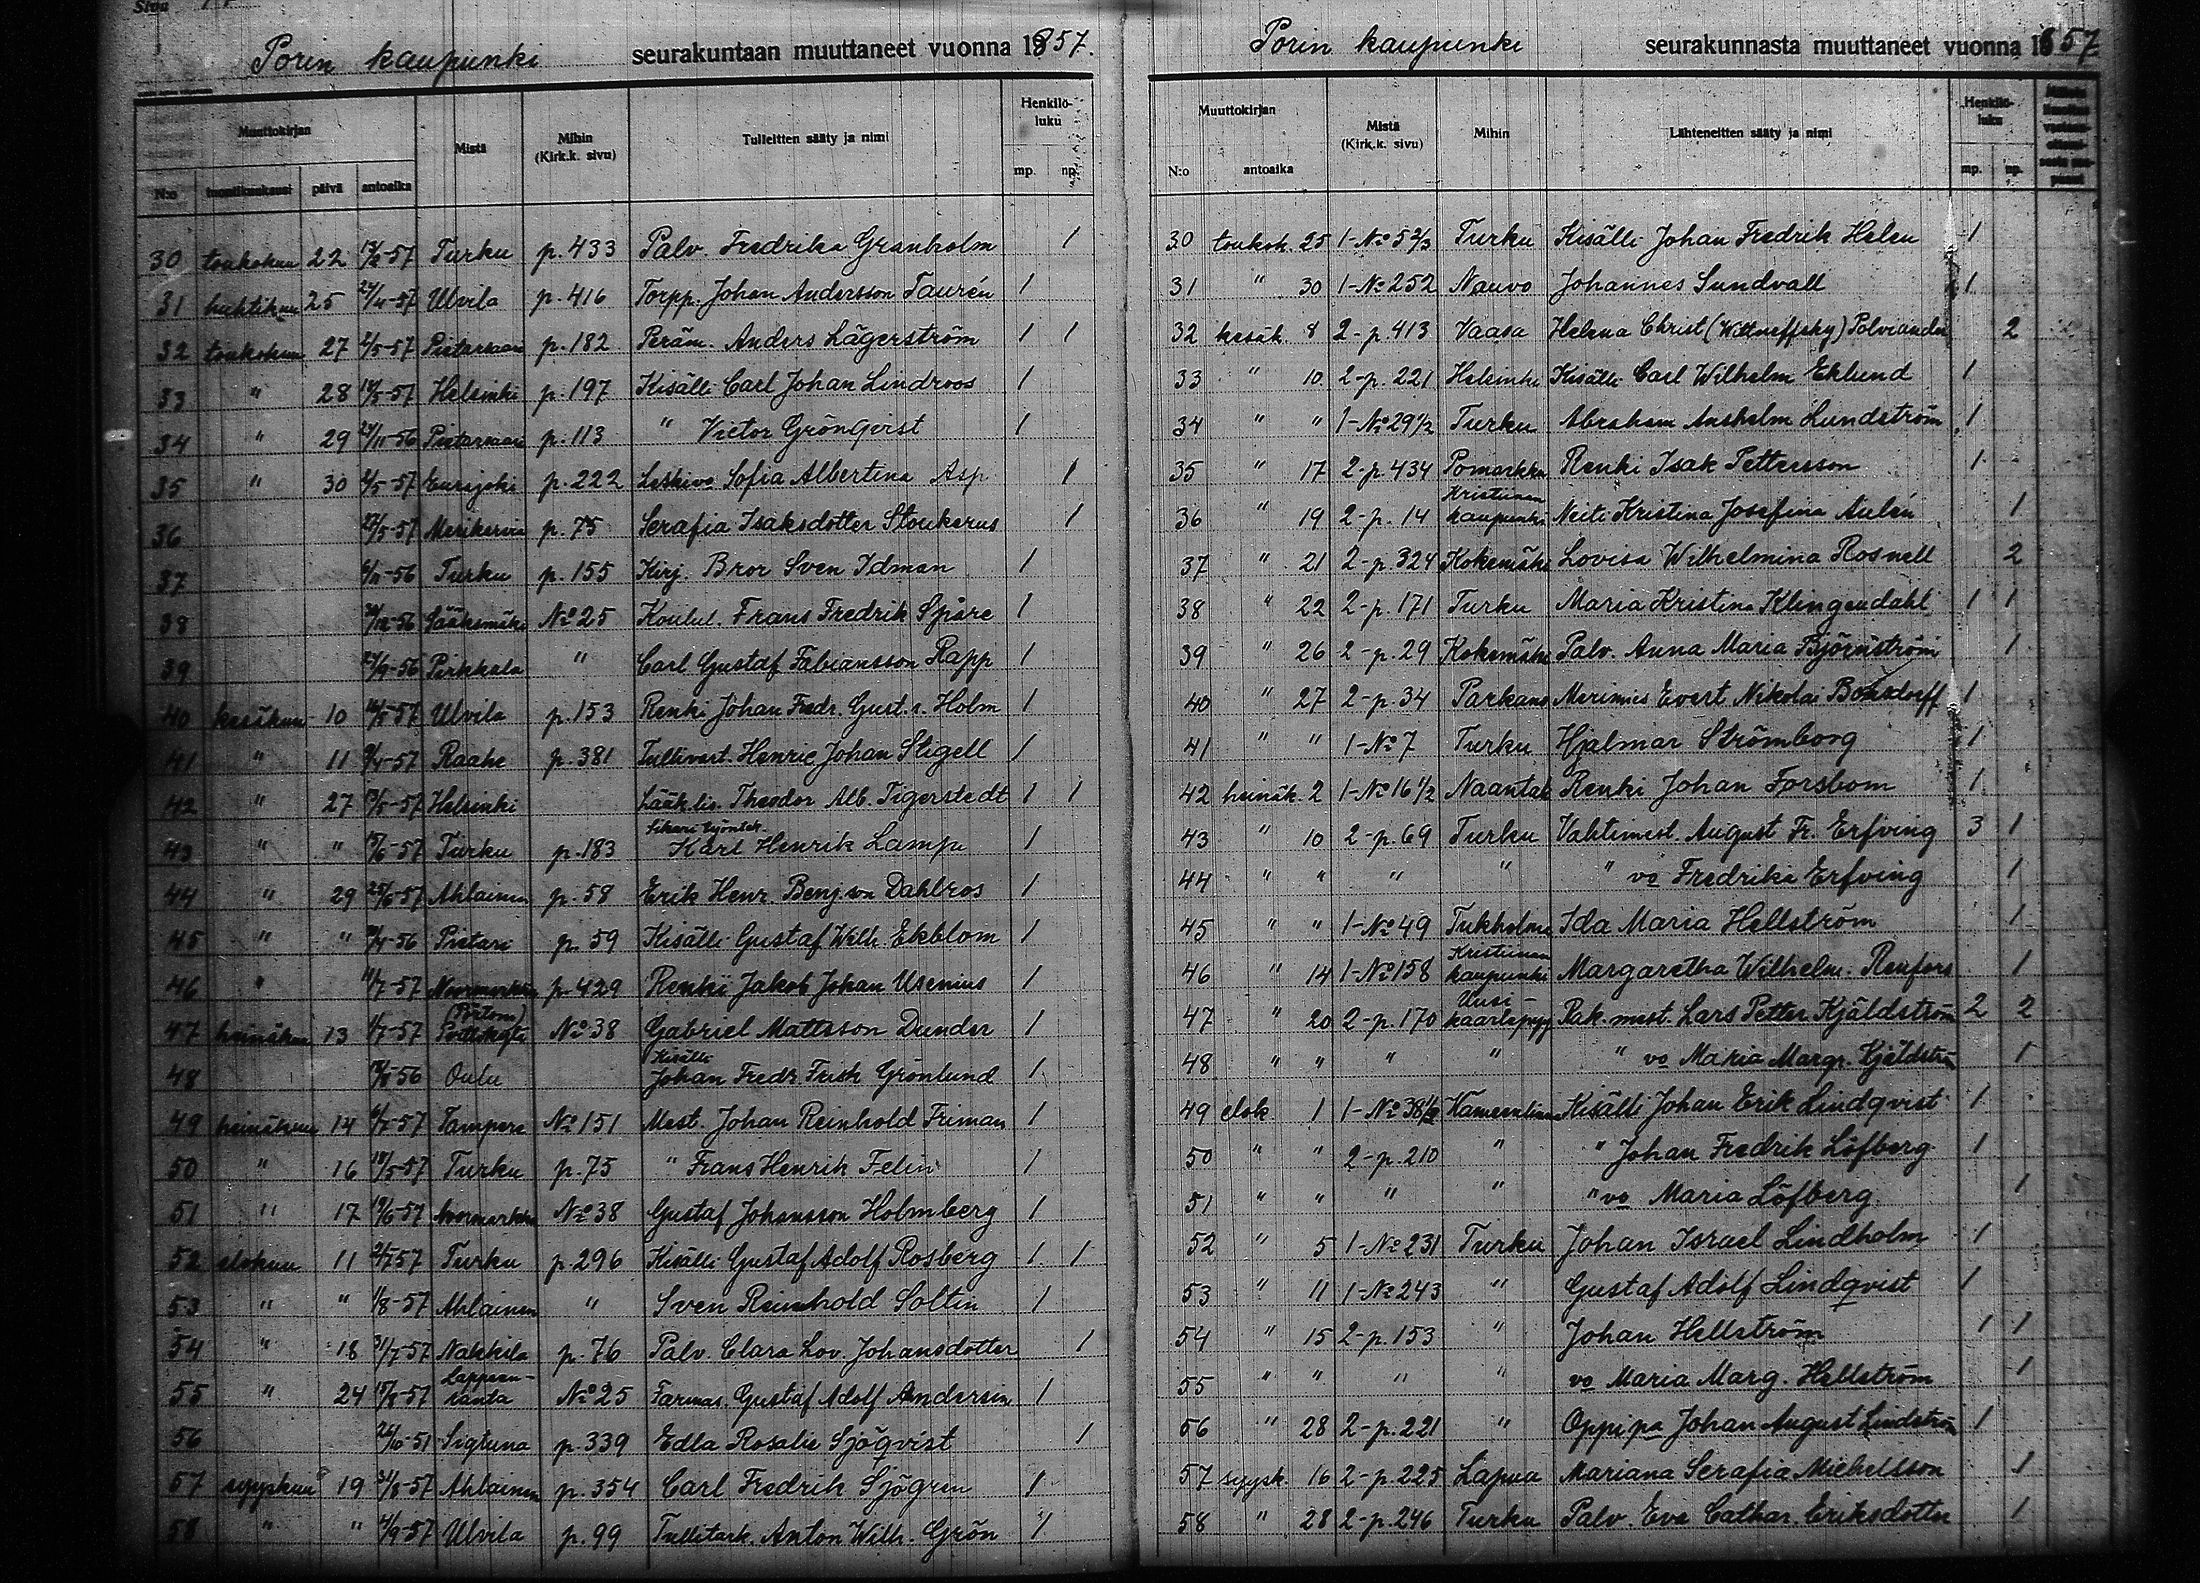 Sivu
Porin kaupunki seurakuntaan muuttaneet vuonna 1857.
Muuttokirjan Mistä Mihin (Kirk.k. sivu) Tulleitten sääty ja nimi Henkilöluku
N:o tuontikuukausi päivä antoaika mp. np.
30 toukokuu 22 -57 Turku p. 433 Palv. Fredrika Granholm 1
31 huhtikuu 25 -57 Ulvila p. 416 Torpp. Johan Andersson Taurén 1
32 toukokuu 27 2/5-57 Pietarsaari p. 182 Peräm. Anders Lägerström 1 1
33 " 28 -57 Helsinki p. 197 Kisälli Carl Johan Lindroos 1
34 " 29 -56 Pietarsaari p. 113 " Victor Grönqvist 1
35 " 30 -57 Eurajoki p. 222 Leskivo Sofia Albertina Asp 1
36 27/5-57 Merikarvia p. 75 Serafia Isaksdotter Stoukerus 1
37 -56 Turku p. 155 Kirj. Bror Sven Idman 1
38 -56 Sääksmäki No 25 Koulul. Frans Fredrik Spåre 1
39 -56 Pirkkala " Carl Gustaf Fabiansson Rapp 1
40 kesäkuu 10 -57 Ulvila p. 153 Renki Johan Fredr. Gust. Holm 1
41 " 11 -57 Raahe p. 381 Tullivart. Henric Johan Stigell 1
42 " 27 -57 Helsinki Lääk.lis. Theodor Alb. Tigerstedt 1 1
43 " " -57 Turku p. 183 Karl Henrik Lampe 1
44 " 29 25/6-57 Ahlainen p. 58 Erik Henr. Benj.son Dahlros 1
45 " " -56 Pietari p. 59 Kisälli Gustaf Wilh. Ekblom 1
46 " -57 Noormarkku p. 429 Renki Jakob Johan Usenius 1
47 heinäkuu 13 1/7-57 (Pörtom) No 38 Gabriel Mattsson Dunder 1
48 -56 Oulu Kisälli Johan Fredr. Frisk Grönlund 1
49 heinäkuu 14 -57 Tampere No 151 Mest. Johan Reinhold Friman 1
50 " 16 18/5-57 Turku p. 75 " Frans Henrik Felin 1
51 " 17 -57 Noormarkku No 38 Gustaf Johansson Holmberg 1
52 elokuu 11 57 Turku p. 296 Kisälli Gustaf Adolf Rosberg 1 1
53 " " 1/8-57 Ahlainen " Sven Reinhold Soltin 1
54 " 18 31/7-57 Nakkila p. 76 Palv. Clara Lov. Johansdotter 1
55 " 24 -57 Lappeenranta No 25 Farmas. Gustaf Adolf Andersin 1
56 26/10-51 Sigtuna p. 339 Edla Rosalie Sjöqvist 1
57 syyskuu 19 31/8-57 Ahlainen p. 354 Carl Fredrik Sjögren 1
58 " " 4/9-57 Ulvila p. 99 Tullitark. Anton Wilh. Grön 1
Porin kaupunki seurakunnasta muuttaneet vuonna 1857
Muuttokirjan Mistä (Kirk.k. sivu) Mihin Lähteneitten sääty ja nimi Henkilöluku
N:o antoaika mp. np.
30 toukok. 25 1-No 52/3 Turku Kisälli Johan Fredrik Helen 1
31 " 30 1-No 252 Nauvo Johannes Sundvall 1
32 kesäk. 8 2-p. 413 Vaasa Helena Christ 2
33 " 10 2-p. 221 Helsinki Kisälli Carl Wilhelm Eklund 1
34 " " 1-No 29 1/2 Turku Abraham Anshelm Lundström 1
35 " 17 2-p. 434 Pomarkku Renki Isak Pettersson 1
36 " 19 2-p. 14 Kristiinan kaupunki Neiti Kristina Josefina Aulén 1
37 " 21 2-p. 324 Kokemäki Lovisa Wilhelmina Rosnell 2
38 " 22 2-p. 171 Turku Maria Kristina Klingendahl 1 1
39 " 26 2-p. 29 Kokemäki Palv. Anna Maria Björnström 1
40 " 27 2-p. 34 Parkano Merimies Evert Nikolai Bonsdorff 1
41 " " 1-No 7 Turku Hjalmar Strömborg 1
42 heinäk. 2 1-No 16 1/2 Naantali Renki Johan Forsbom 1
43 " 10 2-p. 69 Turku Vahtimest. August Fr. Erfving 3 1
44 " " " " " vo Fredrika Erfving 1
45 " " 1-No 49 Tukholma Ida Maria Hellström 1
46 " 14 1-No 158 Kristiinan kaupunki Margaretha Wilhelm. Renfors 1
47 " 20 2-p. 170 Uusikaarlepyy Rak. mest. Lars Petter Kjäldström 2 2
48 " " " " " vo Maria Margr. Kjäldström 1
49 elok. 1 1-No 38 1/2 Hämeenlinna Kisälli Johan Erik Lindqvist 1
50 " " 2-p. 210 " " Johan Fredrik Löfberg 1
51 " " " " " vo Maria Löfberg 1
52 " 5 1-No 231 Turku Johan Israel Lindholm 1
53 " 11 1-No 243 " Gustaf Adolf Lindqvist 1
54 " 15 2-p. 153 " Johan Hellström 1 1
55 " " " " vo Maria Marg. Hellström 1
56 " 28 2-p. 221 " Oppipa Johan August Lindström 1
57 syysk. 16 2-p. 225 Lapua Mariana Serafia Michelsson 1
58 " 28 2-p. 246 Turku Palv. Eva Cathar. Eriksdotter 1